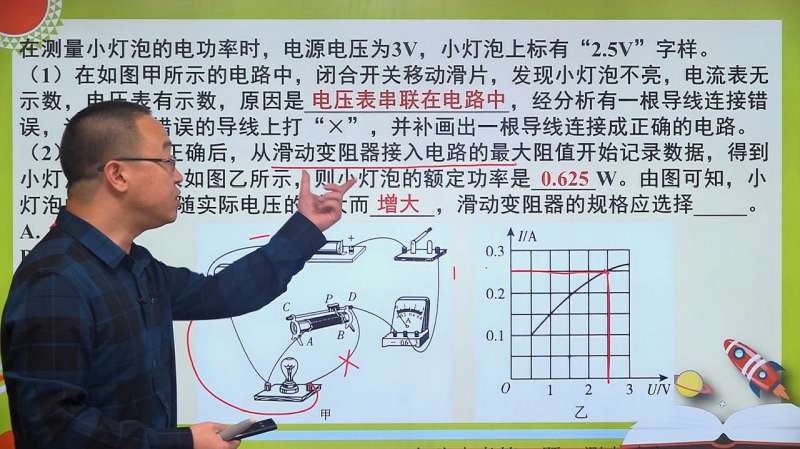 在测量小灯泡的电功率时，电源电压为3V，小灯泡上标有“2.5V”字样。
（1）在如图甲所示的电路中，闭合开关移动滑片，发现小灯泡不亮，电流表无
示数，电压表有示数，原因是 电压表串联在电路中 ，经分析有一根导线连接错
误， 错误的导线上打“×”，并补画出一根导线连接成正确的电路。
（2） 正确后，从滑动变阻器接入电路的最大阻值开始记录数据，得到
小灯 如图乙所示，则小灯泡的额定功率是 0.625 W。由图可知，小
灯泡 随实际电压的 大而 增大 ，滑动变阻器的规格应选择 。
A.
+
C P D
A B
甲
I/A
0.3
0.2
0.1
O 1 2 3 U/V
乙